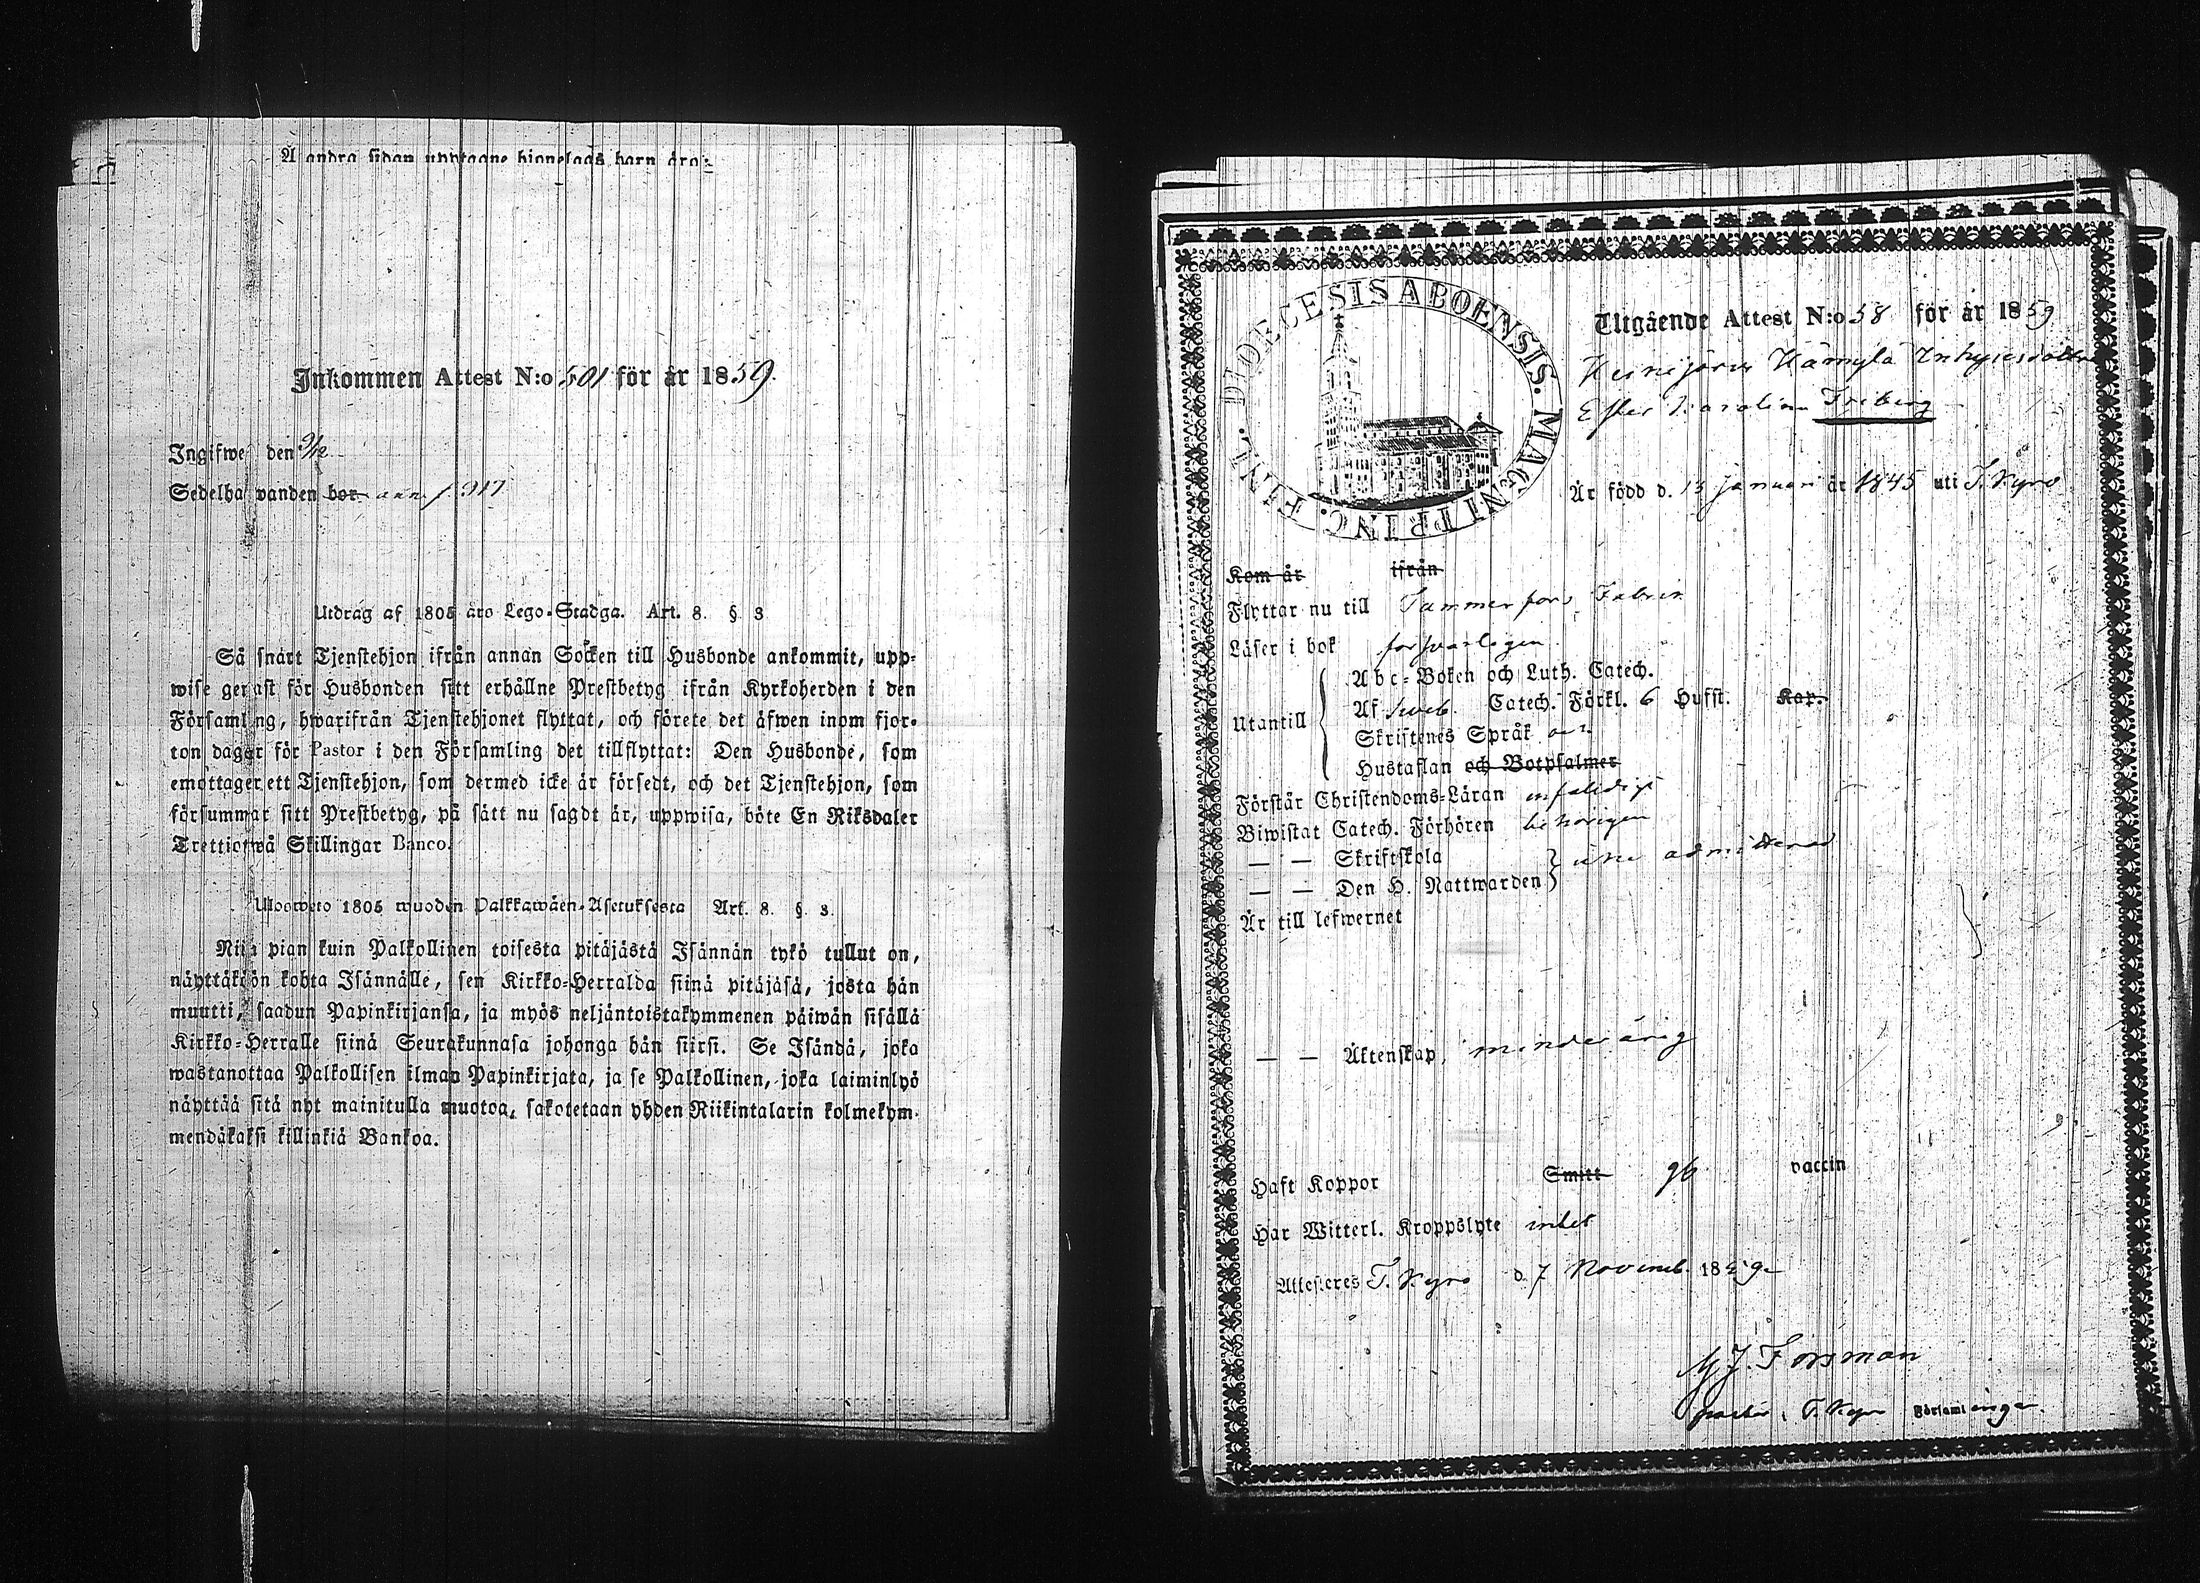 Å andra sidan upptagne hionelags barn äro:
Inkommen Attest N:o 501 för år 1859.
Ingifwes den 9/12
Sedelhafvanden bor ann. f 917
Utdrag af 1805 års Lego-Stadga. Art. 8. § 3
Så snart Tjenstehjon ifrån annan Socken till Husbonde ankommit, upp-
wise genast för Husbonden sitt erhållne Prestbetyg ifrån Kyrkoherden i den
Församling, hwarifrån Tjenstehjonet flyttat, och förete det äfwen inom fjor-
ton dagar för Pastor i den Församling det tillflyttat: Den Husbonde, som
emottager ett Tjenstehjon, som dermed icke är försedt, och det Tjenstehjon, som
försummar sitt Prestbetyg, på sätt nu sagdt är, uppwisa, böte En Riksdaler
Trettiotwå Skillingar Banco.
Ulosweto 1805 wuoden Palkkawäen-Asetuksesta Art. 8. §. 3.
Niin pian kuin Palkollinen toisesta pitäjästä Isännän tykö tullut on,
näyttäköön kohta Isännälle, sen Kirkko-Herralda siinä pitäjäsä, josta hän
muutti, saadun Papinkirjansa, ja myös neljäntoistakymmenen päiwän sisällä
Kirkko-Herralle siinä Seurakunnasa johonga hän siirsi. Se Isändä, joka
wastanottaa Palkollisen ilman Papinkirjata, ja se Palkollinen, joka laiminlyö
näyttää sitä nyt mainitulla muotoa, sakotetaan yhden Riikintalarin kolmekym-
mendäkaksi killinkiä Bankoa.
DIOECESIS ABOENSIS. MAGNI PRINC. FINL.
Utgående Attest N:o 58 för år 1859
Heinijärvi Hämylä Inhysesdotter
Ester Karolina Friberg
Är född d. 13 januari år 1845 uti T. Kyro
Kom år ifrån
Flyttar nu till Tammerfors Fabrik
Läser i bok försvarligen
Utantill
Abc-Boken och Luth. Catech.
Af Sveb. Catech. Förkl. 6 Hufst. Kap.
Skriftenes Språk och
Hustaflan och Botpsalmer
Förstår Christendoms-Läran enfaldigt
Biwistat Catech. Förhören behörigen
— — Skriftskola
— — Den H. Nattwarden } icke admitterad
Är till lefwernet
— — Äktenskap, minderårig
Haft Koppor Smitt gb vaccin
Har Witterl. Kroppslyte intet
Attesteres T. Kyro d. 7 Novemb. 1859
G J. Forsman
pastor i T. Kyro Församlingar.